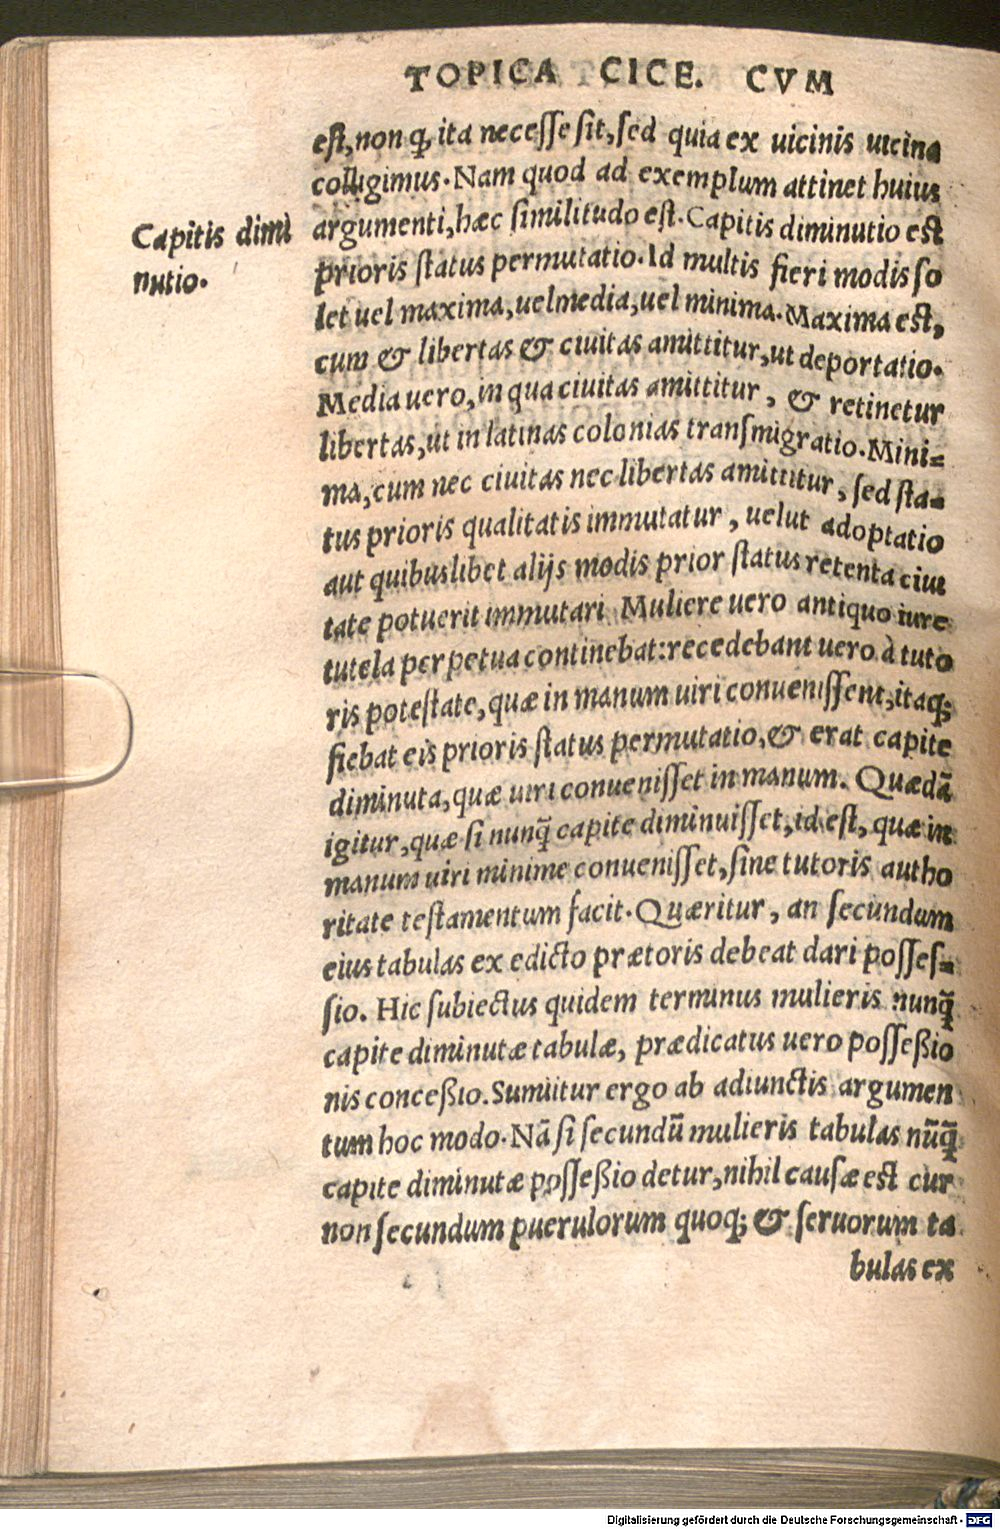 TOPICA CICE. CVM
est, non q̃ ita necesse sit, sed quia ex uicinis uicina
colligimus. Nam quod ad exemplum attinet huius
Capitis dimi
nutio.
argumenti, hæc similitudo est. Capitis diminutio est
prioris status permutatio. Id multis fieri modis so
let uel maxima, uel media, uel minima. Maxima est,
cum & libertas & ciuitas amittitur, ut deportatio.
Media uero, in qua ciuitas amittitur, & retinetur
libertas, ut in latinas colonias transmigratio. Mini=
ma, cum nec ciuitas nec libertas amittitur, sed sta=
tus prioris qualitatis immutatur, uelut adoptatio
aut quibuslibet alijs modis prior status retenta ciui
tate potuerit immutari. Muliere uero antiquo iure
tutela perpetua continebat: recedebant uero à tuto
ris potestate, quæ in manum uiri conuenissent, itaq;
fiebat eis prioris status permutatio, & erat capite
diminuta, quæ uiri conuenisset in manum. Quædã
igitur, quæ si nunq̃ capite diminuisset, id est, quæ in
manum uiri minime conuenisset, sine tutoris autho
ritate testamentum facit. Quæritur, an secundum
eius tabulas ex edicto prætoris debeat dari posses=
sio. Hic subiectus quidem terminus mulieris nunq̃
capite diminutæ tabulæ, prædicatus uero posseßio
nis conceßio. Sumitur ergo ab adiunctis argumen
tum hoc modo. Nã si secundũ mulieris tabulas nũq̃
capite diminutæ possesßio detur, nihil causæ est cur
non secundum puerulorum quoq; & seruorum ta
bulas ex
Digitalisierung gefördert durch die Deutsche Forschungsgemeinschaft - DFG